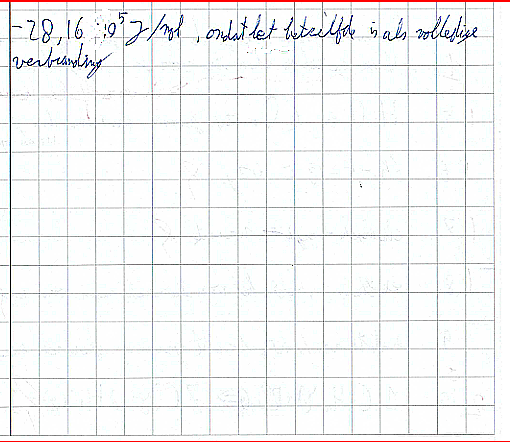 -28,16 · 10⁵ J/mol, omdat het hetzelfde is als volledige
verbranding